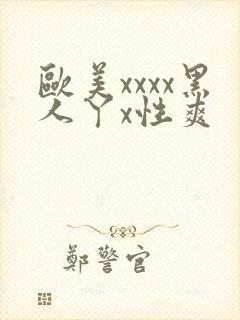 歐美xxxx黑
人丫x性爽
鄭警官